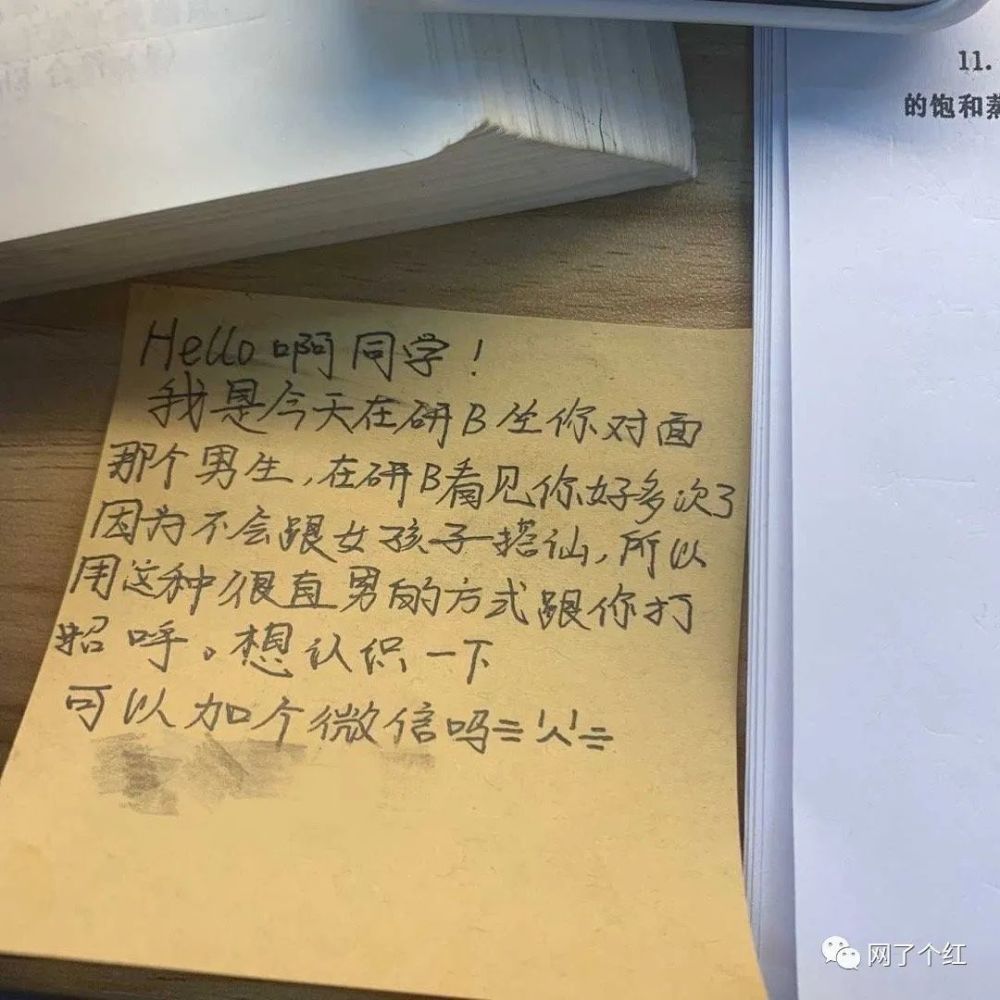 11.
的饱和蒸
Hello 啊同学!
我是今天在研B坐你对面
那个男生,在研B看见你好多次了
因为不会跟女孩子搭讪,所以
用这种很直男的方式跟你打
招呼。想认识一下
可以加个微信吗=╹人╹=
网了个红